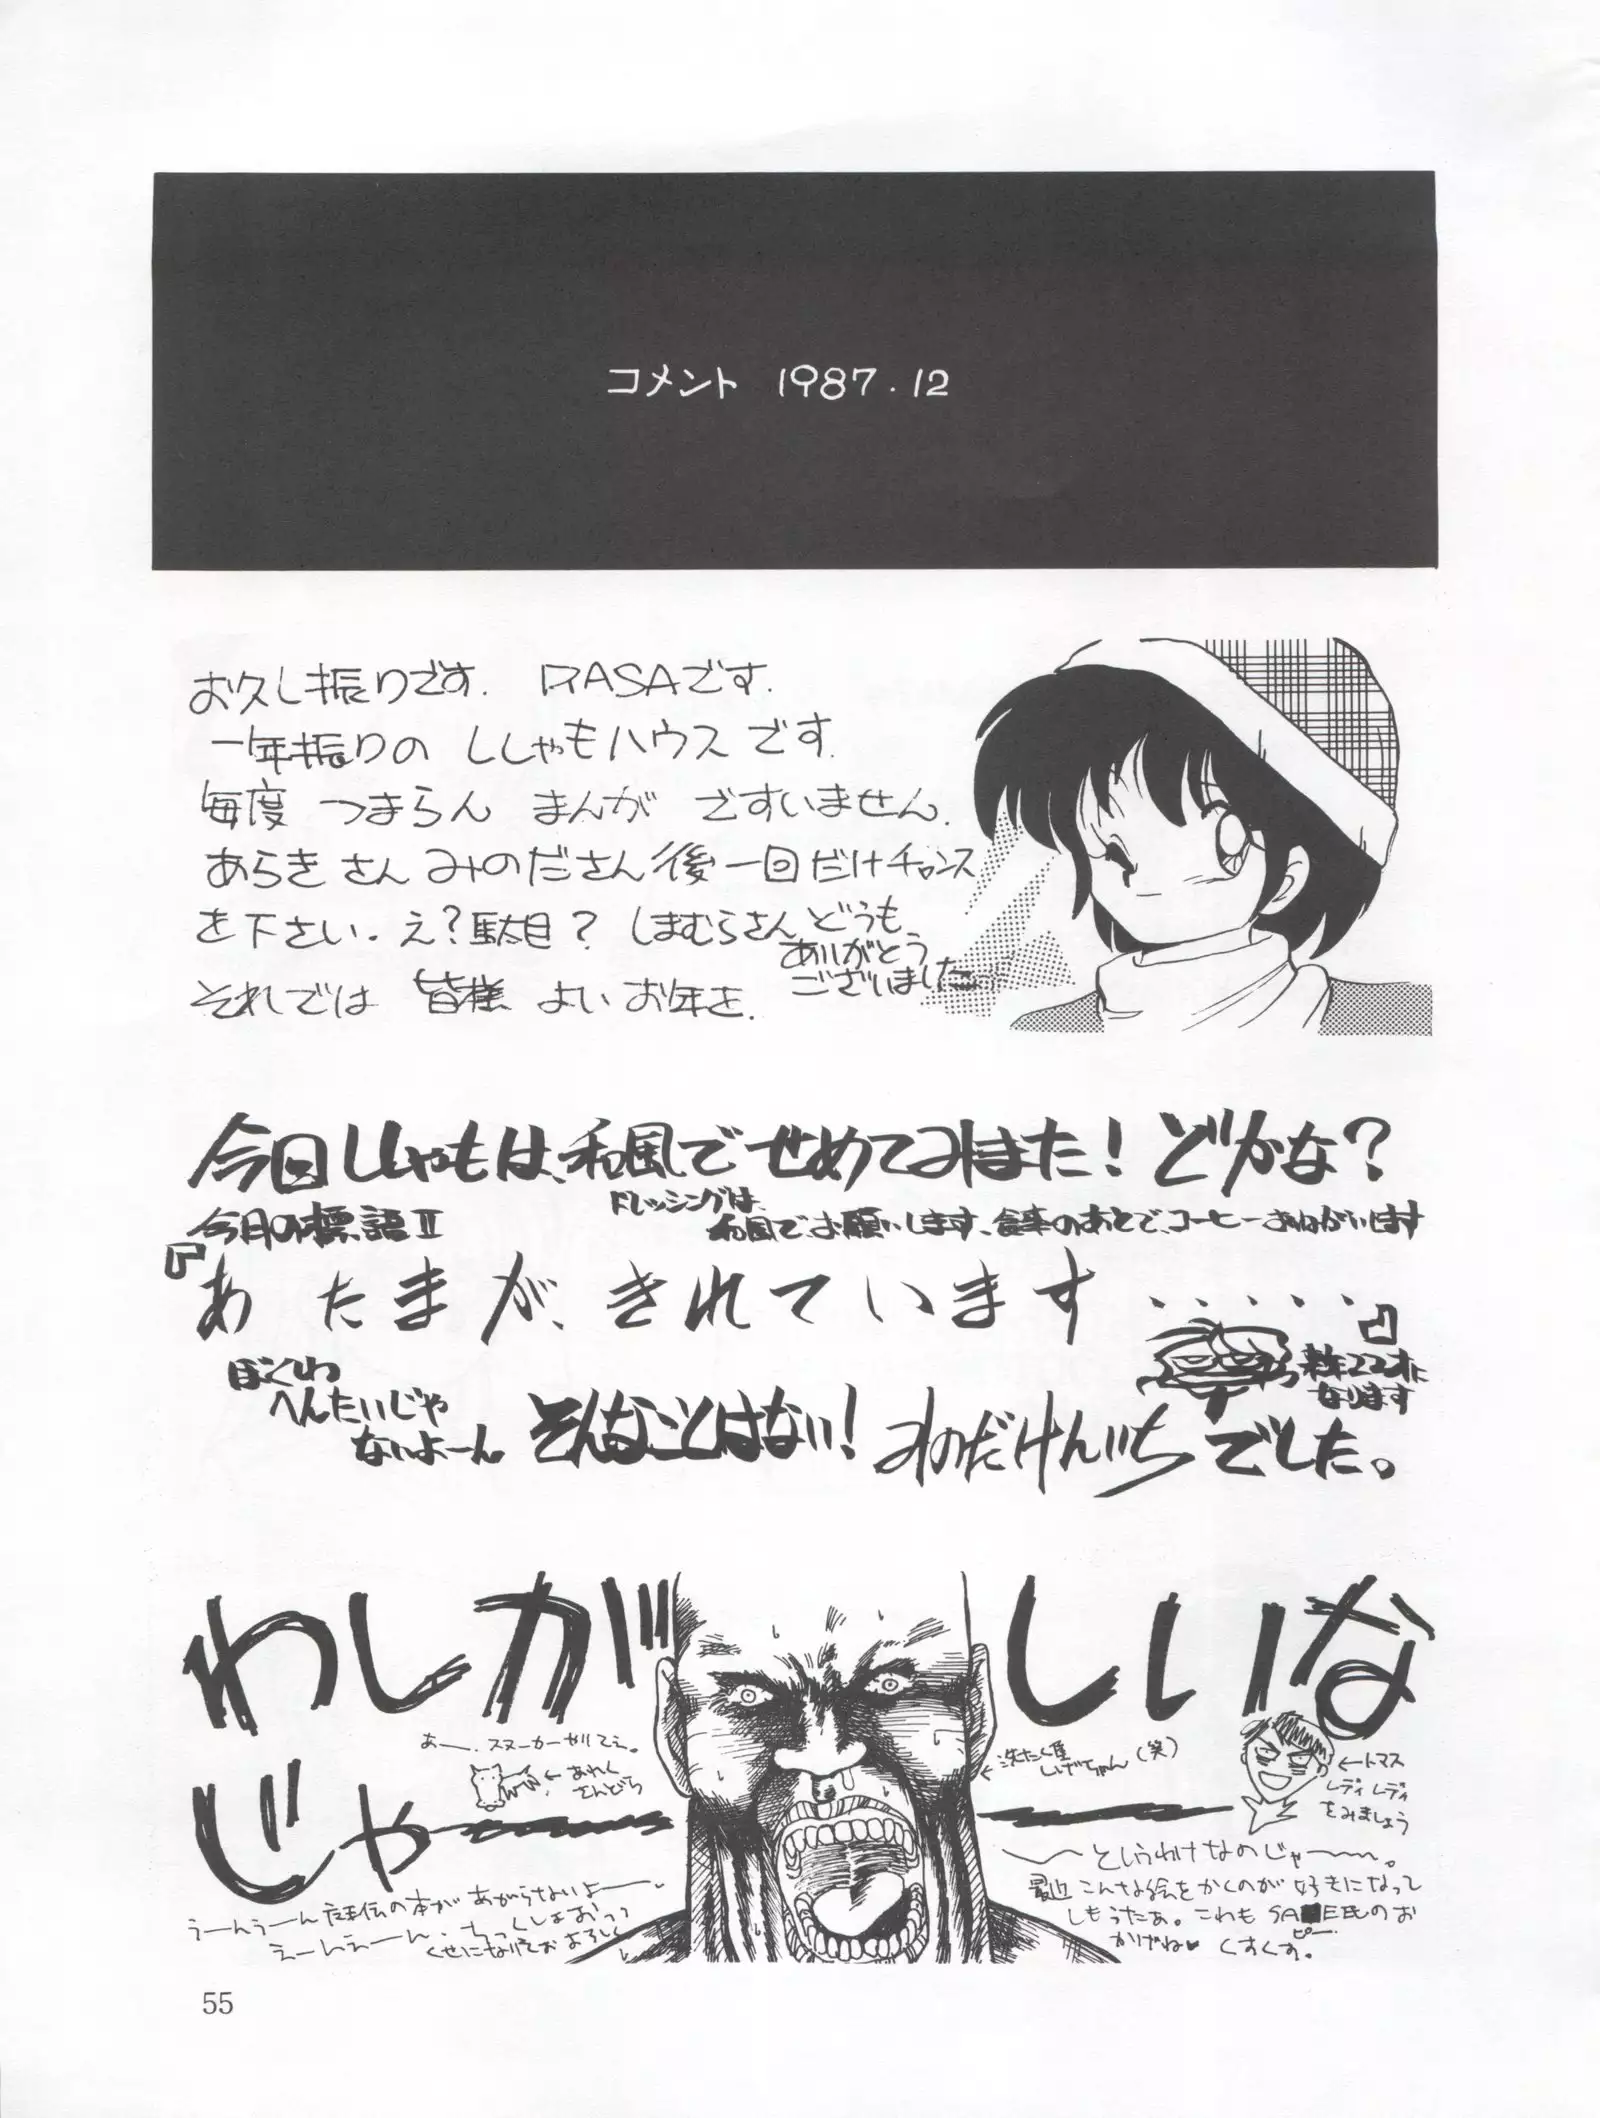 コメント 1987.12
お久し振りです. RASAです.
一年振りの ししゃもハウスです.
毎度 つまらん まんが ですいません.
あらきさん みのださん 後一回だけチャンス
を下さい. え?駄目? しまむらさん どうも
ありがとう
ございました
それでは 皆様 よいお年を.
今回ししゃもは、和風でせめてみました!どかな?
今月の標語Ⅱ
ドレッシングは、
和風で、お願いします、食事のあとで、コーヒーおねがいします
『あたまが、きれています・・・・・・』
ぼくしわ
へんたいじゃ
ないよーん
そんなことはない! みのだけんいちでした。
なります
わしが しいな
じゃ
あー、スヌーカーやりてえ。
←あれく
さんどら
←洗たく屋
しげちゃん(笑)
←トマス
レディレディ
をみましょう
〜というわけなのじゃ〜。
最近こんな絵をかくのが好きになって
しもうたぁ。これもSA■EE氏のお
ピー
かげね♥ くすくす。
うーんうーん の本があがらないよー
えーんえーん、ちっくしょおっっ
くせになりそおよろしく
55